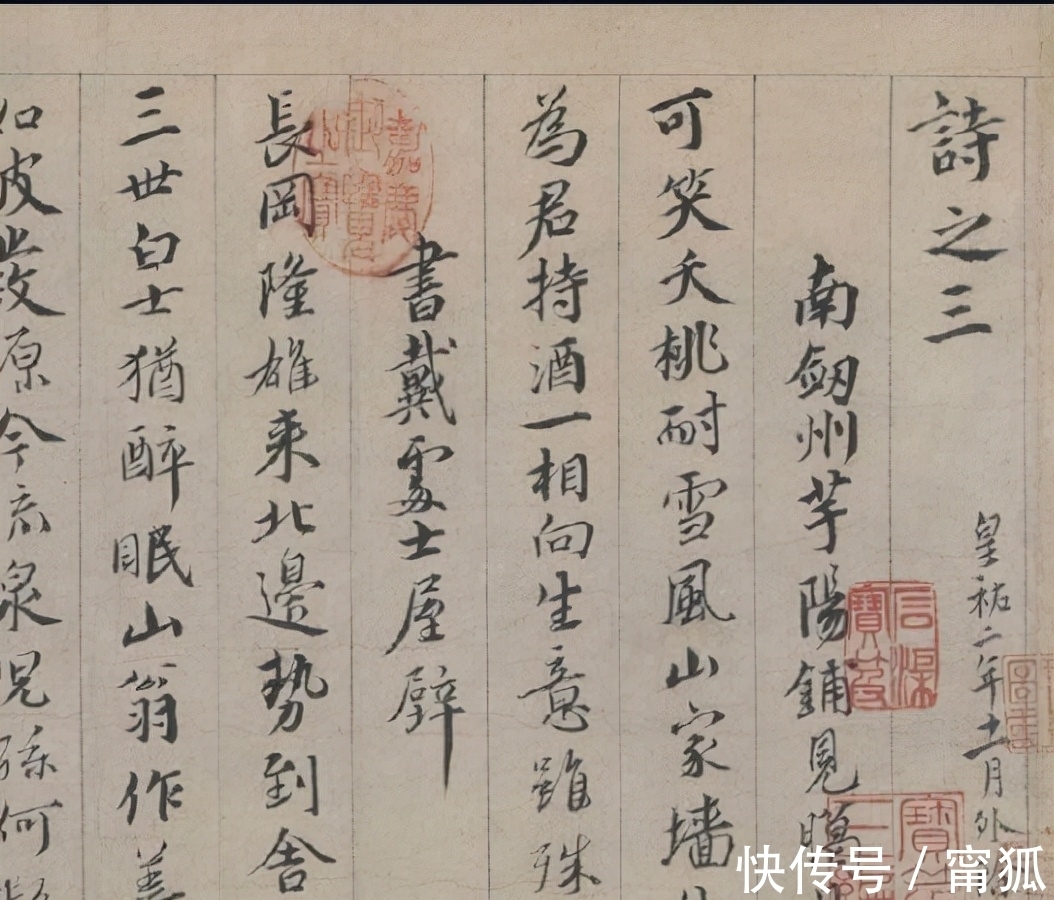 詩之三
皇祐二年十一月外
南劔州芋陽鋪見臘
可笑夭桃耐雪風山家墻
為君持酒一相向生意雖殊
書戴處士屋壁
長岡隆雄来北邊勢到舎
三世白士猶醉眠山翁作善
如皮此段原今衣泉児孫何
嘉慶御覽之寶
快传号 / 甯狐